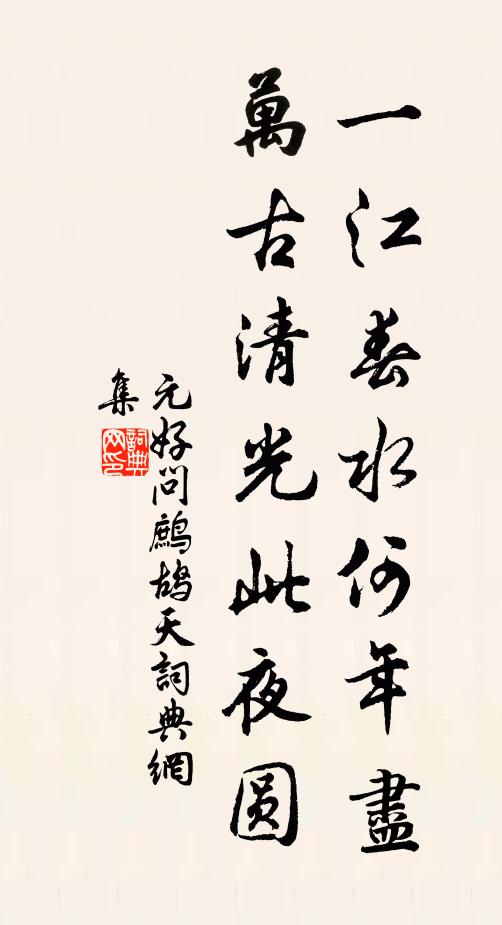 一江春水何年盡
萬古清光此夜圆
元好问鷓鴣天詞典網
集
詞典网印